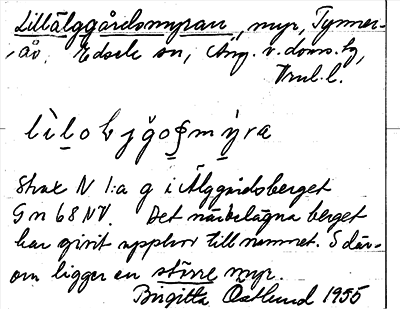 Lillälggårdsmyran, myr, Tynner-
ås, Edsele sn, Ång. v. doms. hg,
Vnl. l.
Strax N 1:a g i Älggårdsberget
G n 68 NV. Det närbelägna berget
har givit upphov till namnet. S där-
om ligger en större myr.
Birgitta Östlund 1955